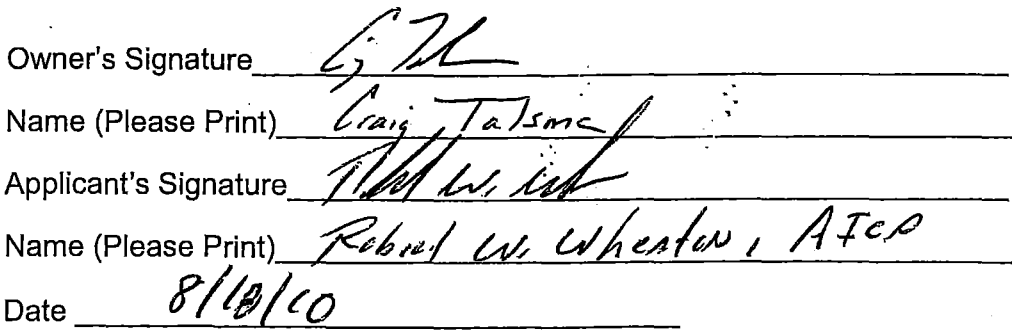 Owner's Signature
Name (Please Print) Craig Talsma
Applicant's Signature
Name (Please Print) Robert W. Wheaton, AICP
Date 8/18/10